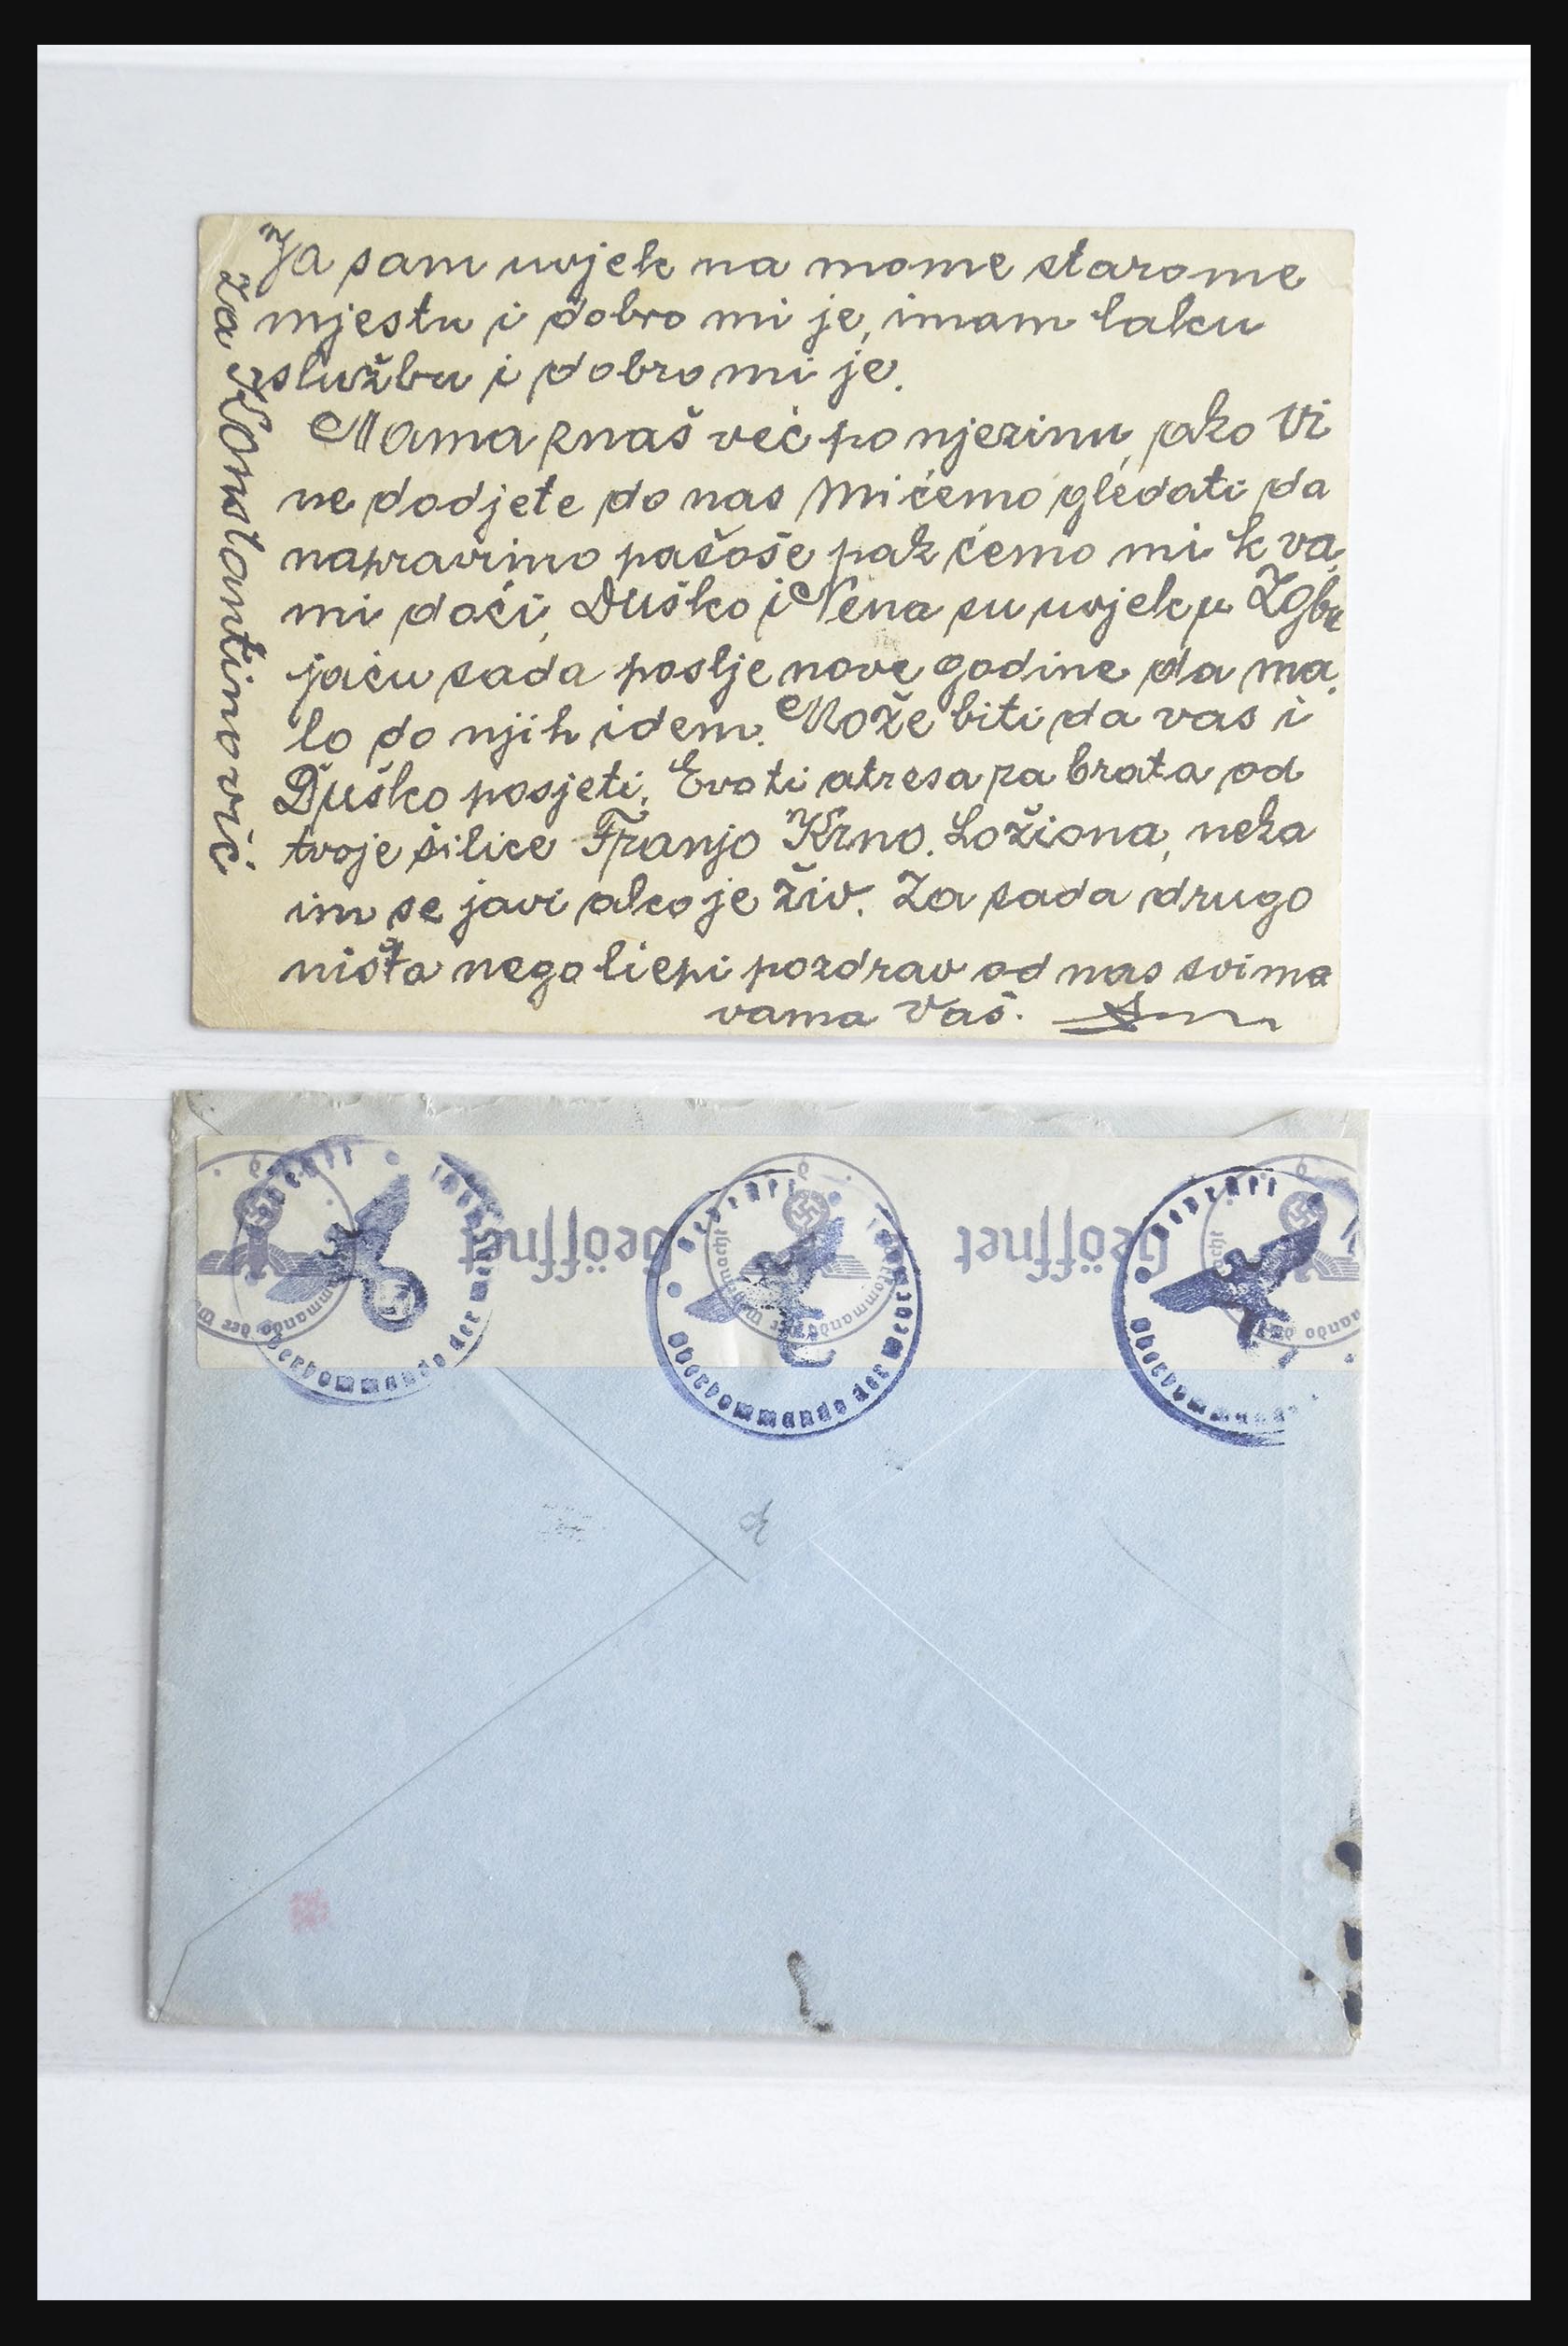 Ja sam uvjek na mome starome
mjestu i dobro mi je, imam laku
službu i dobro mi je.
Mama znaš već po njezinu, ako Vi
ne dodjete do nas mi ćemo gledati da
napravimo pašoše pak ćemo mi k va
mi doći, Duško i Nena su uvjek u Zgbr
jaću sada poslje nove godine da ma
lo do njih idem. Može biti da vas i
Duško posjeti. Evo ti atresa za brata od
tvoje šilice Franjo Krno. Ložiona, neka
im se javi ako je živ. Za sada drugo
ništa nego liepi pozdrav od nas svima
vama Vaš.
Za Konstantinović
Geöffnet
Geöffnet
Oberkommando der Wehrmacht
Oberkommando der Wehrmacht
Oberkommando